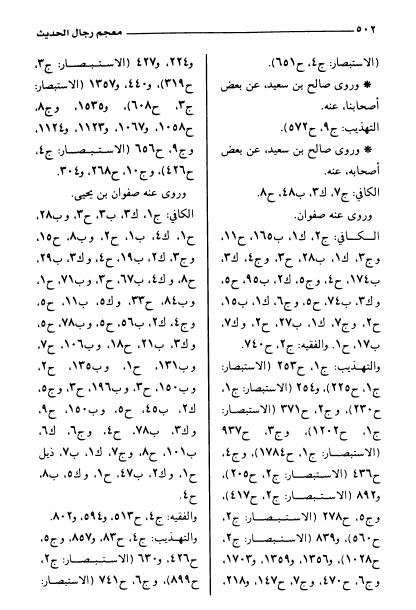 ٥٠٢ معجم رجال الحديث
(الاستبصار: ج٤، ح٦٥١).
* وروى صالح بن سعيد، عن بعض
أصحابنا، عنه.
التهذيب: ج٩، ح٥٧٢).
* وروى صالح بن سعيد، عن بعض
أصحابه، عنه.
الكافي: ج٧، ك٣، ب٤٨، ح٨.
وروى عنه صفوان.
الكافي: ج٢، ك١، ب١٦٥، ح١١،
وج٣، ك١، ب٢٨، ح٣، وج٤، ك٣،
ب١٧٤، ح٤، وج٥، ك٢، ب٩٥، ح٥،
وك٣، ب٧٤، ح٥، وج٦، ك١، ب١٥،
ح٢، وج٧، ك١، ب٢٧، ح٢، وك٧،
ب١٧، ح١. والفقيه: ج٢، ح٧٤٠.
والتهذيب: ج١، ح٢٥٣ (الاستبصار:
ج١، ح٢٢٥)، و٢٥٤ (الاستبصار: ج١،
ح٢٣٠)، وج٢، ح٣٧١ (الاستبصار:
ج١، ح١٢٠٢)، وج٣، ح٩٣٧
(الاستبصار: ج١، ح١٧٨٤)، وج٤،
ح٤٣٦ (الاستبصار: ج٢، ح٢٠٥)،
و٨٩٢ (الاستبصار: ج٢، ح٤١٧)،
وج٥، ح٢٧٨ (الاستبصار: ج٢،
ح٥٦٠)، و٨٣٩ (الاستبصار: ج٢،
ح١٠٢٨)، و١٣٥٦، و١٣٥٩، و١٧٠٣،
وج٦، ح٤٧٠، وج٧، ح١٤٧، و٢١٨،
و٢٢٤، و٤٢٧ (الاستبصار: ج٣،
ح٣١٩)، و٤٤٠، و١٣٥٧ (الاستبصار:
ج٣، ح٦٠٨)، و١٥٣٥، وج٨،
ح١٠٥٨، و١٠٦٧، و١١٢٣، و١١٢٤،
وج٩، ح٦٥٦ (الاستبصار: ج٤،
ح٤٢٦)، وج١٠، ح٢٦٨، و٣٠٤.
وروى عنه صفوان بن يحيى.
الكافي: ج١، ك٣، ب٣، ح٣، وب٢٨،
ح١، ك٤، ب١، ح٢، وب٨، ح١٥،
وج٣، ك٢، ب١٩، ح٤، وك٣، ب٢٩،
ح٨، وك٤، ب٦٧، ح٣، وب٧١، ح١،
وب٨٤، ح٣٣، وك٥، ب١١، ح٥،
وج٤، ك٢، ب٥٦، ح٥، وب٧٨، ح٥،
وك٣، ب٢١، ح١٨، وب١٠٦، ح٧،
وب١٣١، ح١، وب١٣٥، ح٢،
وب١٥٠، ح٣، وب١٩٦، ح٣، وج٥،
ك٢، ب٤٥، ح٥، وب١٥٠، ح٩،
وك٣، ب٧٨، ح٤، وج٦، ك٦،
ب١٠١، ح٨، وج٧، ك١، ب٧، ذيل
ح١، وك٢، ب٤٧، ح١، وك٥، ب٨،
ح٤.
والفقيه: ج٤، ح٥١٣، و٥٩٤، و٨٠٢.
والتهذيب: ج٤، ح٨٣، و٨٥٧، وج٥،
ح٤٢٦، و٦٣٠ (الاستبصار: ج٢،
ح٨٩٩)، وج٦، ح٧٤١ (الاستبصار: